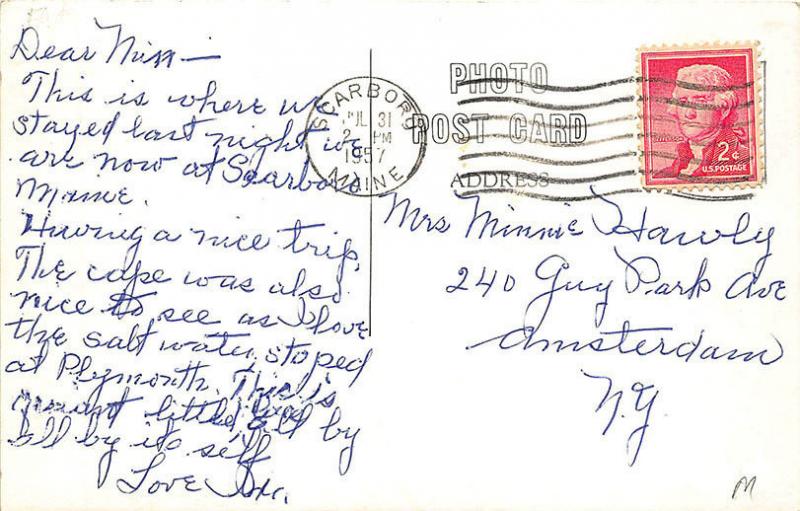 Dear Minn —
This is where we
stayed last night we
are now at Scarboro
Maine.
Having a nice trip.
The cape was also
nice to see as I love
the salt water, stoped
at Plymouth. This is
little all by
all by its self
Love
SCARBORO
JUL 31
2 PM
1957
MAINE
PHOTO
POST CARD
ADDRESS
2¢
U.S. POSTAGE
Mrs Minnie Hawly
240 Guy Park Ave
Amsterdam
N.Y.
M